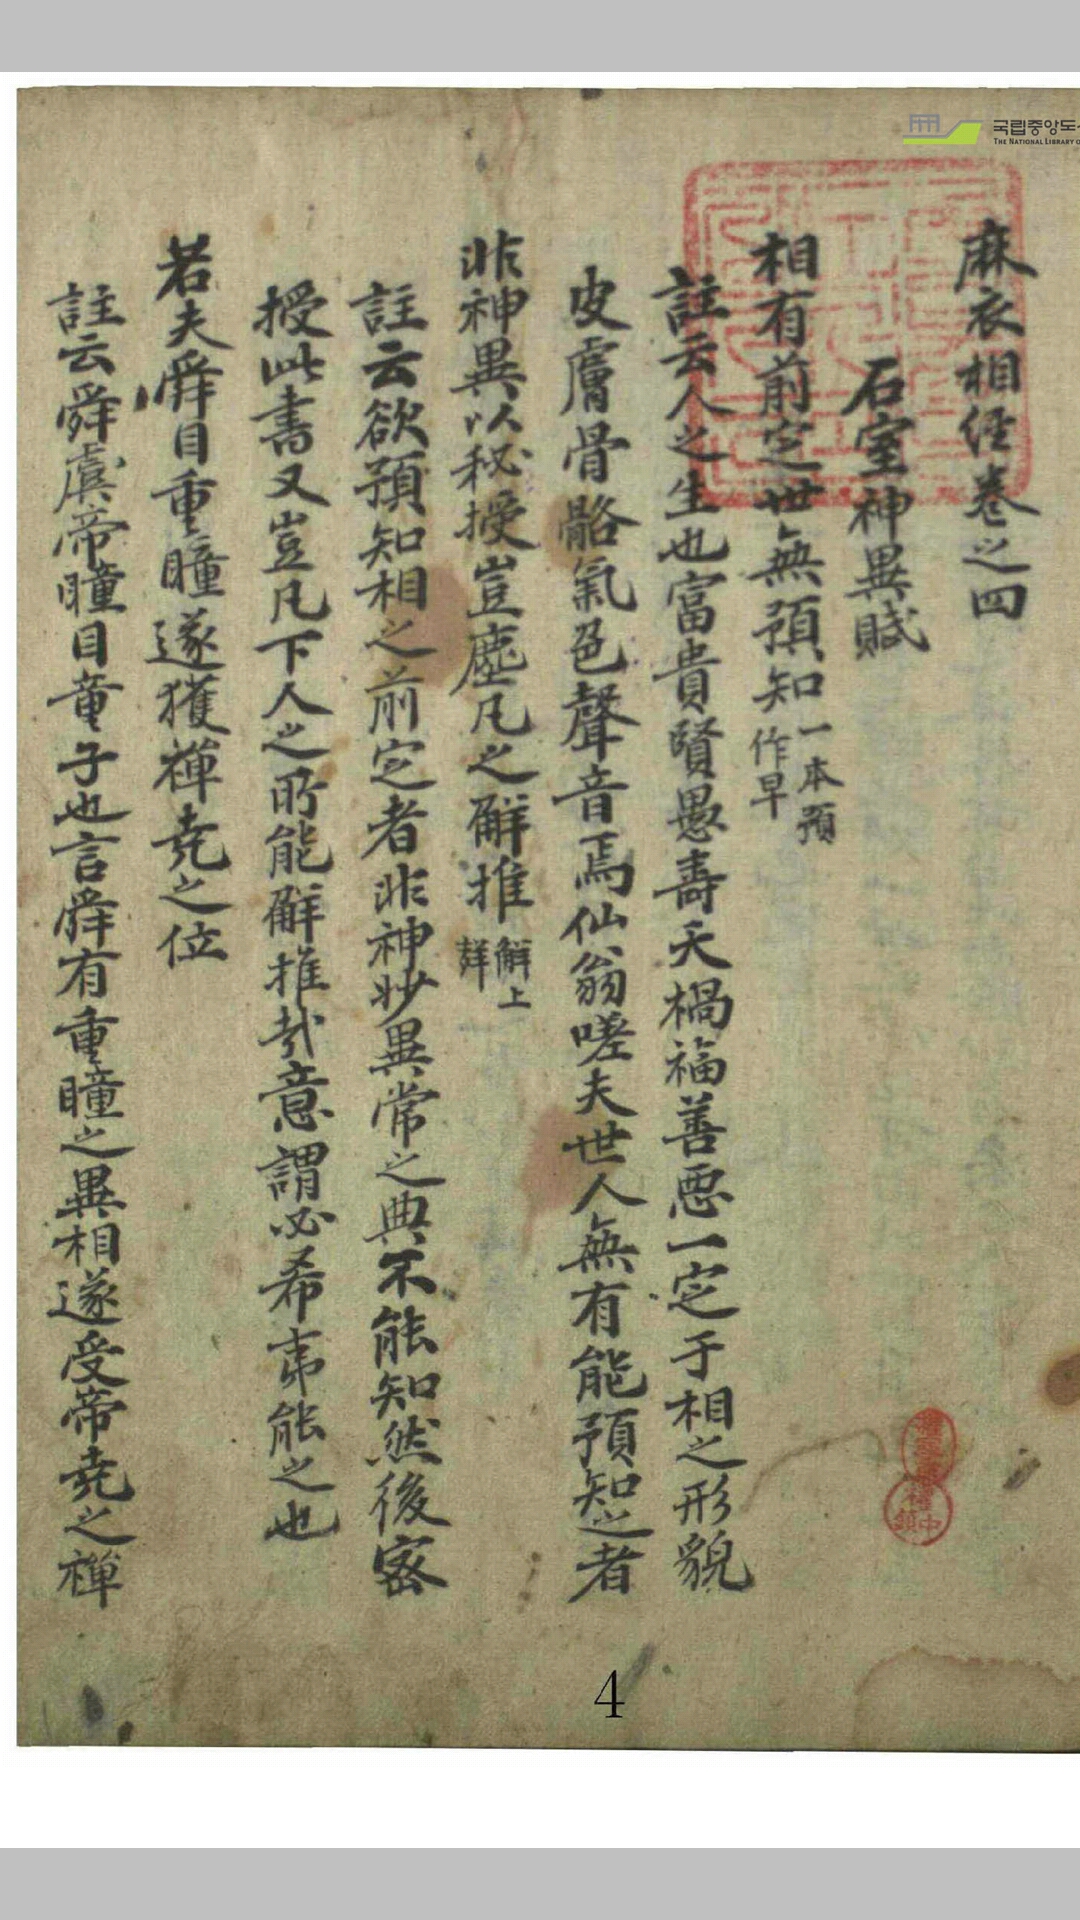 국립중앙도
THE NATIONAL LIBRARY O
麻衣相経卷之四
石室神異賦
相有前定世無預知一本預作早
註云人之生也富貴賢愚壽夭禍福善恶一定于相之形貌
皮膚骨骼氣色聲音焉仙翁嗟夫世人無有能預知之者
非神異以秘授豈塵凡之觧推觧上詳
註云欲預知相之前定者非神妙異常之典不能知然後密
授此書又豈凡下人之所能觧推哉意謂必希夷能之也
若夫舜目重瞳遂獲禪尭之位
註云舜虞帝瞳目童子也言舜有重瞳之異相遂受帝尭之禪
4